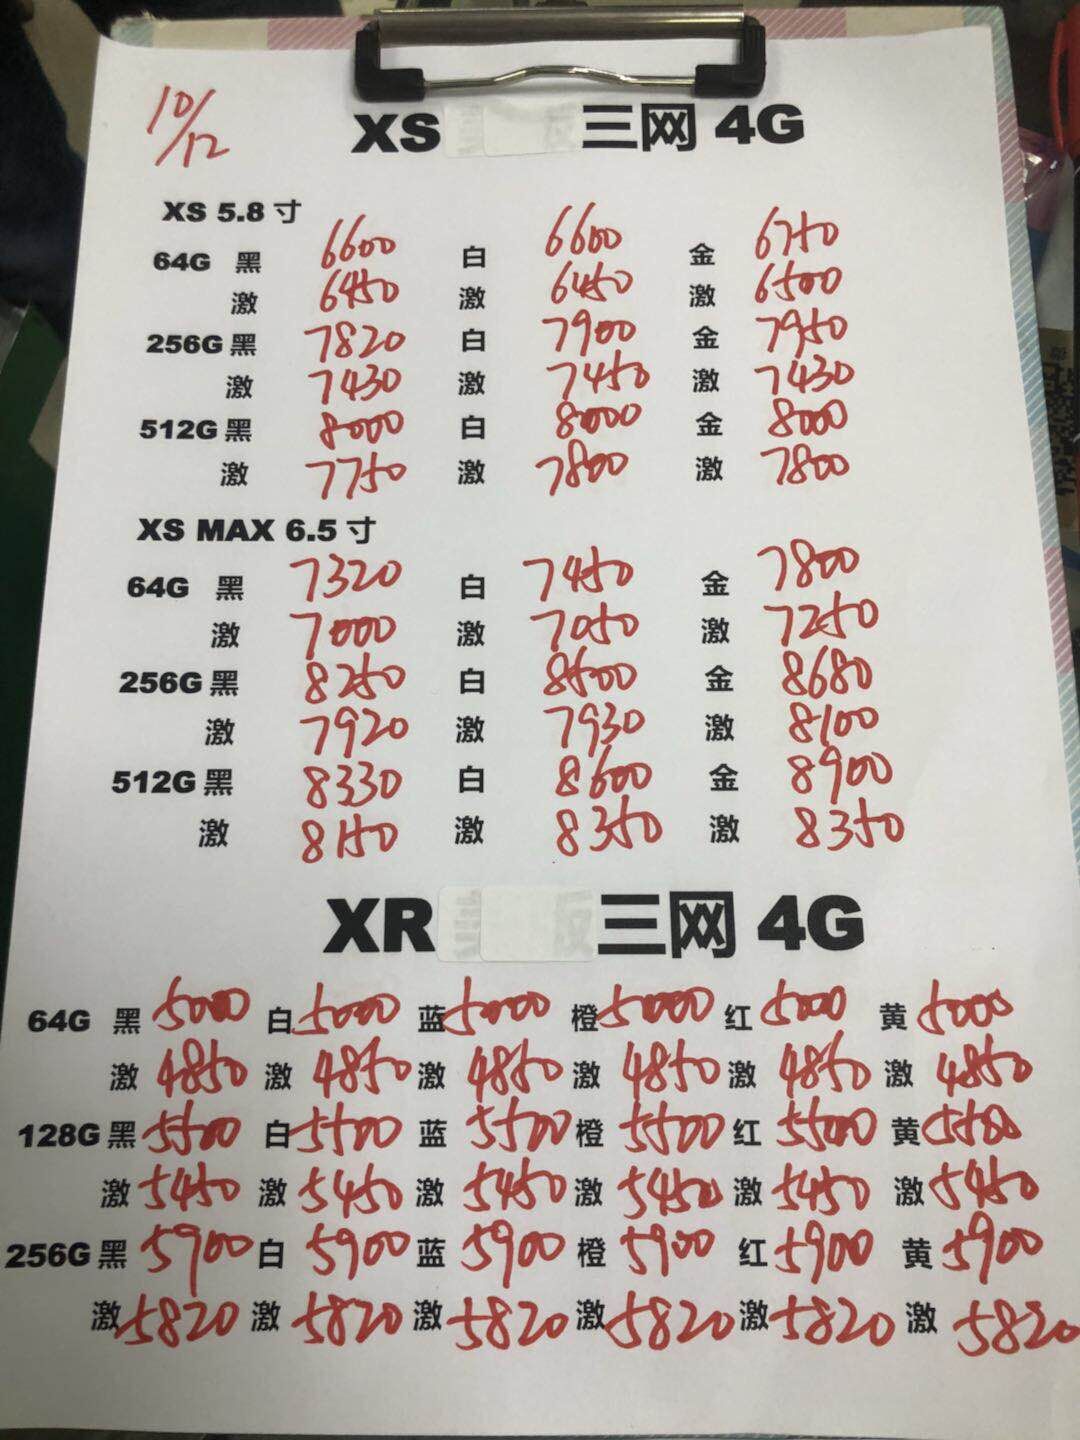 10/12
XS 三网 4G
XS 5.8 寸
64G 黑 6600 白 6600 金 6750
激 6450 激 6450 激 6500
256G 黑 7820 白 7900 金 7950
激 7430 激 7450 激 7430
512G 黑 8000 白 8000 金 8000
激 7750 激 7800 激 7800
XS MAX 6.5 寸
64G 黑 7320 白 7450 金 7800
激 7000 激 7050 激 7250
256G 黑 8250 白 8500 金 8680
激 7920 激 7930 激 8100
512G 黑 8330 白 8600 金 8900
激 8150 激 8350 激 8350
XR 三网 4G
64G 黑 5000 白 5000 蓝 5000 橙 5000 红 5000 黄 5000
激 4850 激 4850 激 4850 激 4850 激 4850 激 4850
128G 黑 5500 白 5500 蓝 5500 橙 5500 红 5500 黄 5500
激 5450 激 5450 激 5450 激 5450 激 5450 激 5450
256G 黑 5900 白 5900 蓝 5900 橙 5900 红 5900 黄 5900
激 5820 激 5820 激 5820 激 5820 激 5820 激 5820